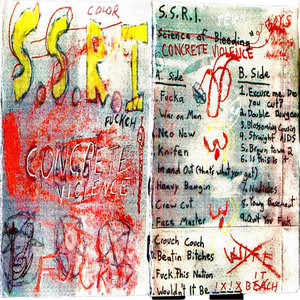 COLOR
S.S.R.I.
FUCKCH!
CONCRETE
VIOLENCE
S.S.R.I.
Science of Bleeding
CONCRETE VIOLENCE
A. Side
Fucka
War on Man
Neo New
Knifen
In and Out (that's what you get)
Heavy Bengin
Crew Cut
Face Master
Crouch Couch
Beatin Bitches
Fuck This Nation
Wouldn't It Be
B. Side
1. Excuse me. Do
you cut?
2. Double Dungeon
3. Blossoming Cousin
4. Straight AIDS
5. Brown Town 2
6. Is This
8. Young Basement
9. Quit You Fuck
WIFE
IT
BEACH